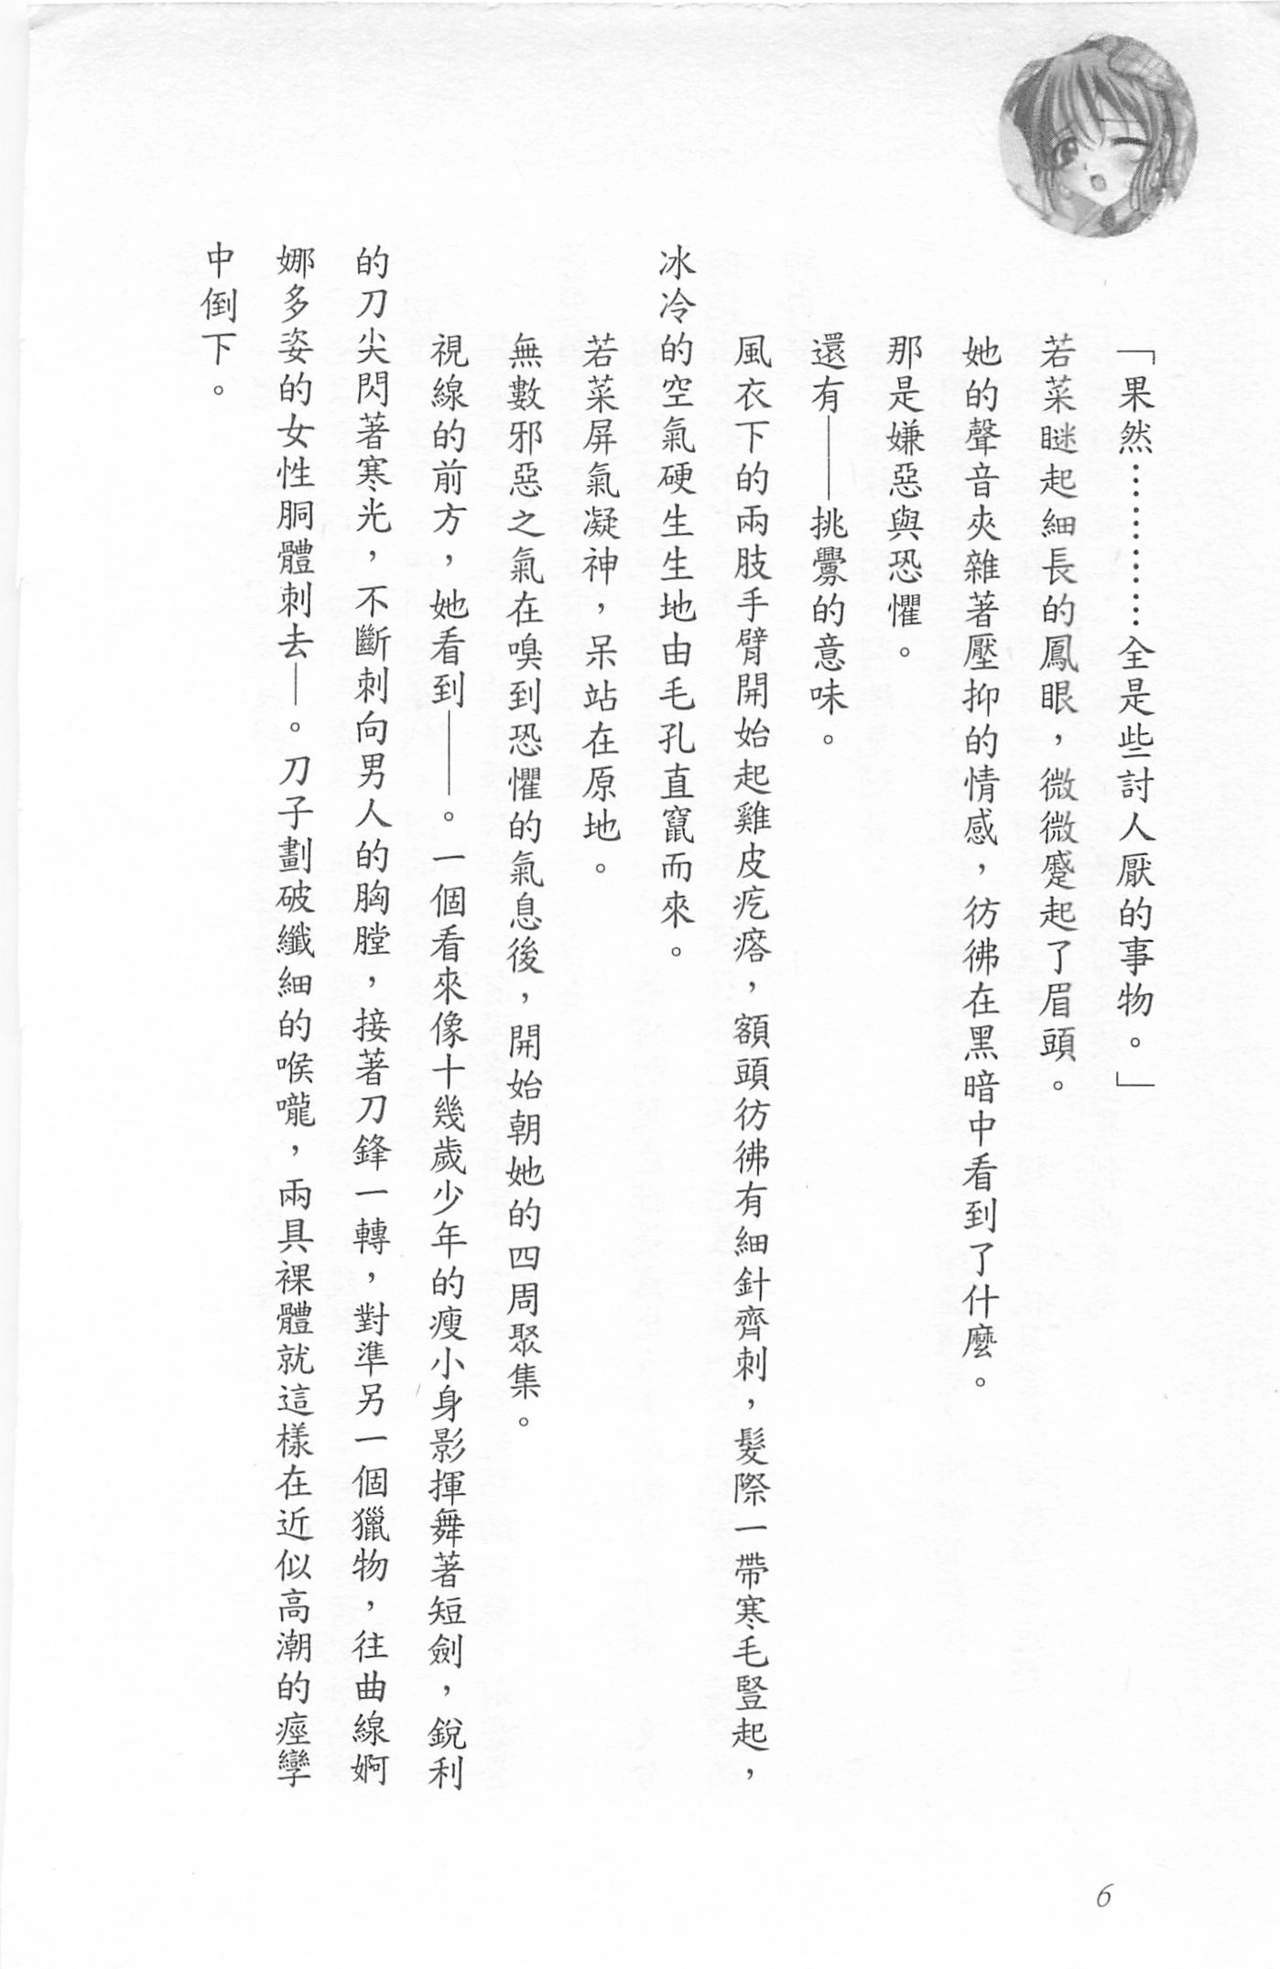 「果然…………全是些討人厭的事物。」
若菜瞇起細長的鳳眼，微微蹙起了眉頭。
她的聲音夾雜著壓抑的情感，彷彿在黑暗中看到了什麼。
那是嫌惡與恐懼。
還有——挑釁的意味。
風衣下的兩肢手臂開始起雞皮疙瘩，額頭彷彿有細針齊刺，髮際一帶寒毛豎起，
冰冷的空氣硬生生地由毛孔直竄而來。
若菜屏氣凝神，呆站在原地。
無數邪惡之氣在嗅到恐懼的氣息後，開始朝她的四周聚集。
視線的前方，她看到——。一個看來像十幾歲少年的瘦小身影揮舞著短劍，銳利
的刀尖閃著寒光，不斷刺向男人的胸膛，接著刀鋒一轉，對準另一個獵物，往曲線婀
娜多姿的女性胴體刺去—。刀子劃破纖細的喉嚨，兩具裸體就這樣在近似高潮的痙攣
中倒下。
6